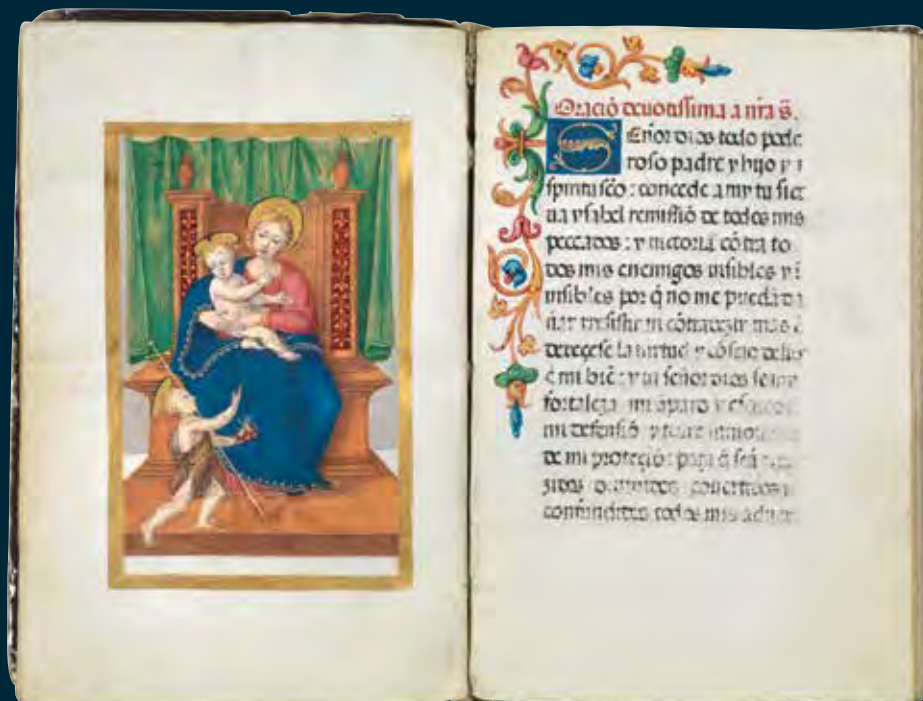 Oració deuotissima a nr̃a s̃.
Señor dios todo pode
roso padre y hijo y i
spiritu sc̃o: concede a my tu sier
ua ysabel remissiõ de todos mis
peccados: y victoria cõtra to
dos mis enemigos visibles y i
uisibles por q̃ no me puedã da
ñar resistir ni cõtradezir mas ẽ
dereçese la virtud y cõsejo dellos
ẽ mi biẽ: y tu señor dios se my
fortaleza mi ãparo y
mi defensiõ y torre
de mi proteciõ: para q̃ seã
conuertidos
confundidos todos mis